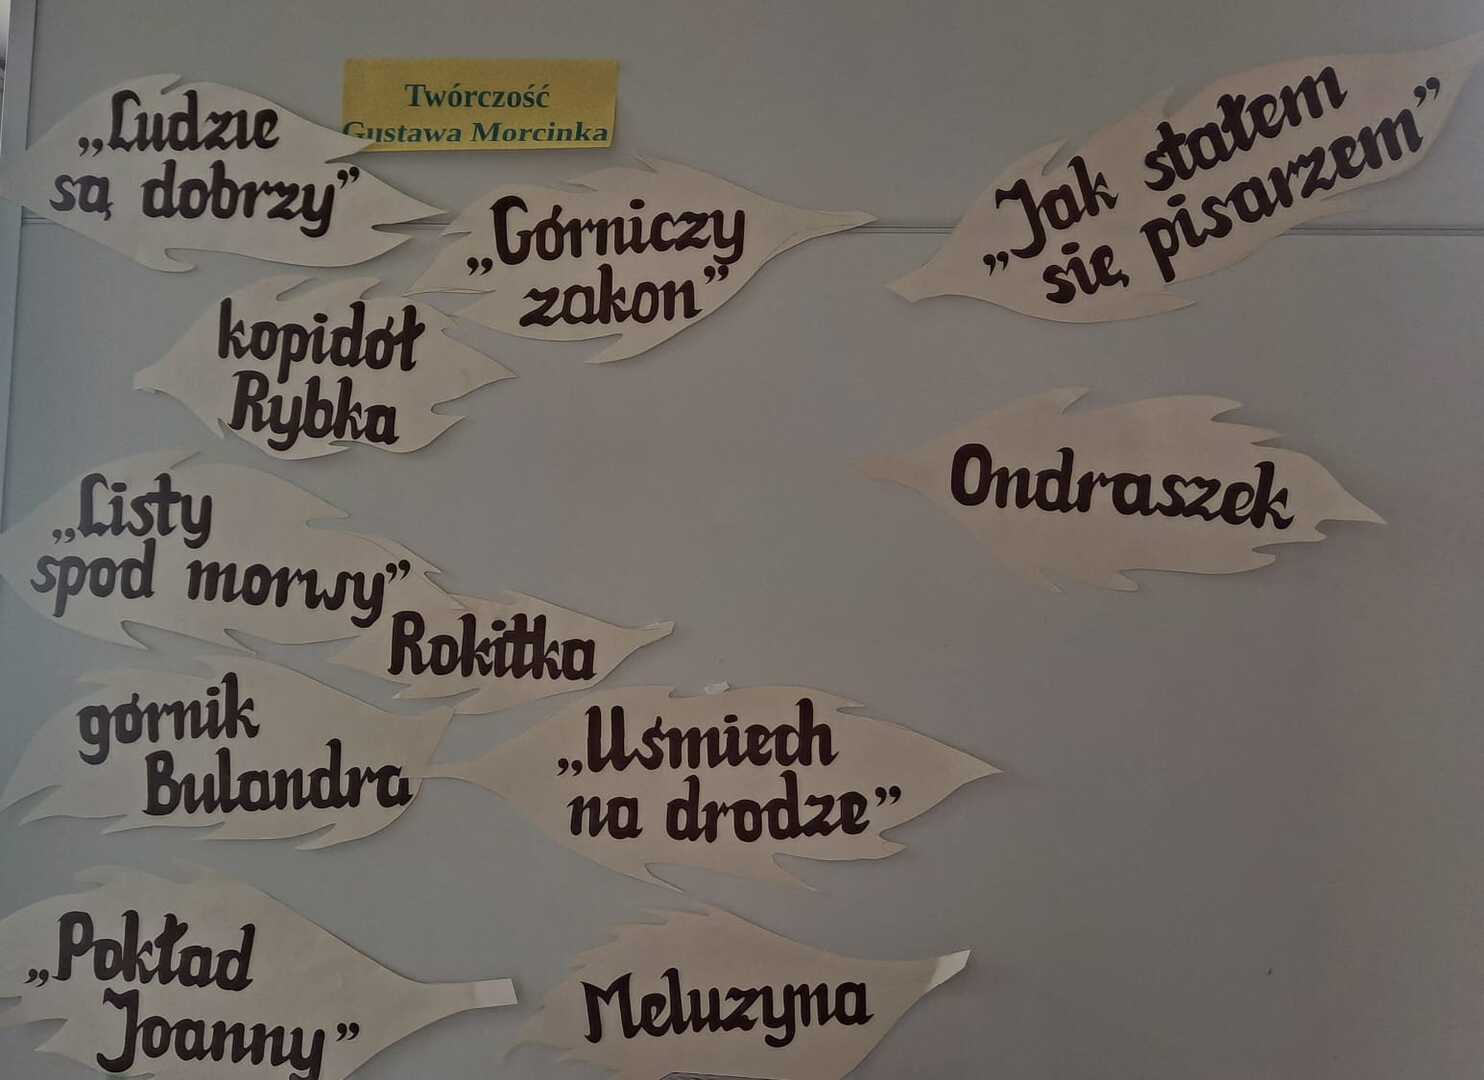 Twórczość
Gustawa Morcinka
„Ludzie
są dobrzy”
„Górniczy
zakon”
„Jak stałem
się pisarzem”
kopidół
Rybka
Ondraszek
„Listy
spod morwy”
Rokitka
górnik
Bulandra
„Uśmiech
na drodze”
„Pokład
Joanny”
Meluzyna